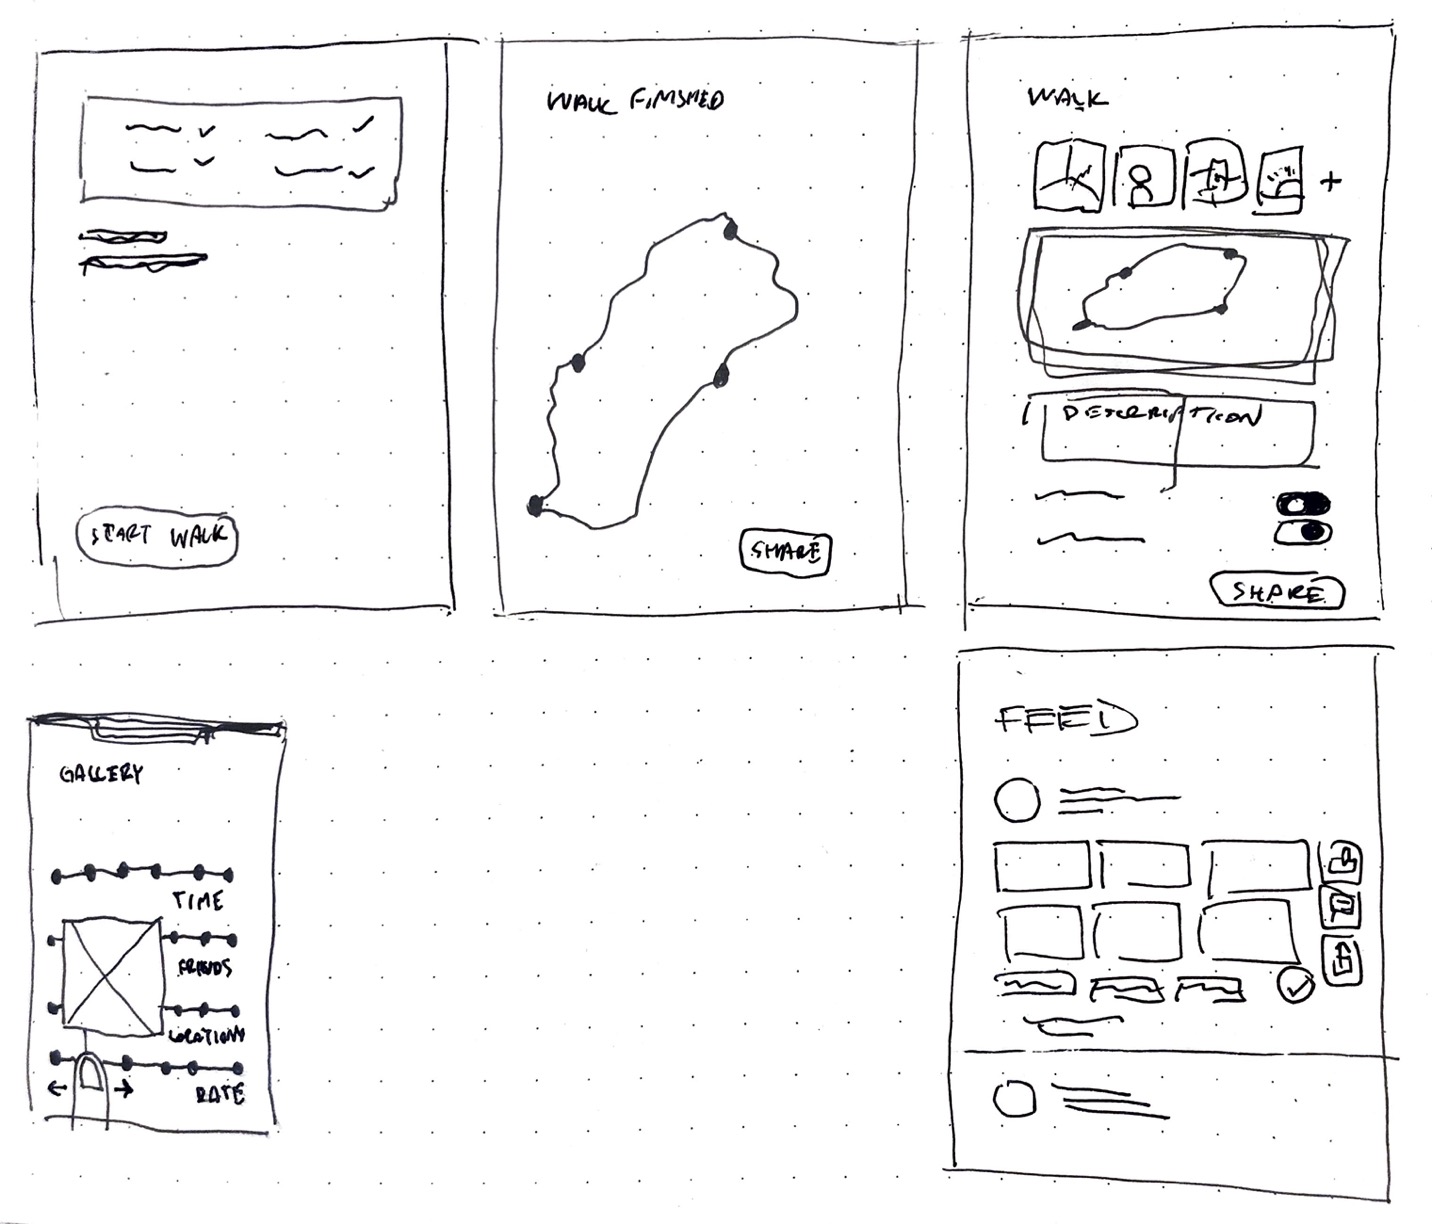 START WALK
WALK FINISHED
SHARE
WALK
DESCRIPTION
SHARE
GALLERY
TIME
FRIENDS
LOCATIONS
RATE
FEED